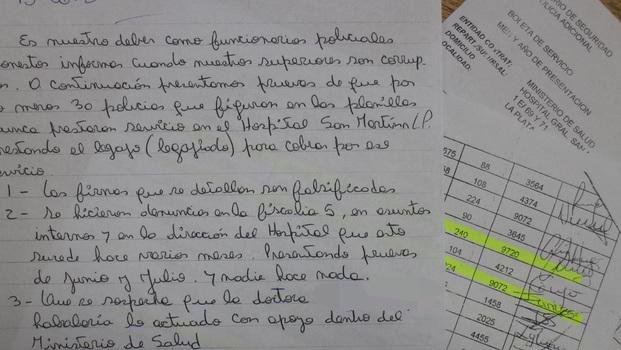 Es nuestro deber como funcionarios policiales
onestos informar cuando nuestros superiores son corrup
s. A continuación presentamos pruebas de que por
o menos 30 policias que figuran en las planillas
unca prestaron servicio en el Hospital San Martin L.P.
restando el legajo (legajeado) para cobrar por ese
rvicio.
1 - Las firmas que se detallan son falsificadas
2 - Se hicieron denuncias en la fiscalia 5, en asuntos
internos y en la dirección del Hospital que esto
sucede hace varios meses. Presentando pruebas
de Junio y Julio. Y nadie hace nada.
3 - Que se sospecha que la doctora
habalaría lo actuado con apoyo dentro del
Ministerio de Salud
RIO DE SEGURIDAD
LICIA ADICIONAL
BOLETA DE SERVICIO
MES Y AÑO DE PRESENTACION
ENTIDAD CONTRAT.
REPART./SUCURSAL:
DOMICILIO
LOCALIDAD:
MINISTERIO DE SALUD
HOSPITAL GRAL. SAN
1 E/ 69 Y 71
LA PLATA
575 88 3564
108 4374
224 9072
90 3845
240 9720
104 4212
24 9072
1458
2025
4455